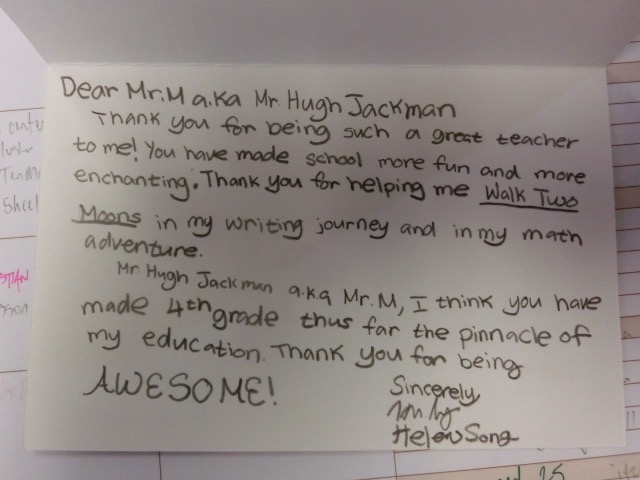 Dear Mr.M a.k.a Mr. Hugh Jackman
Thank you for being such a great teacher
to me! You have made school more fun and more
enchanting. Thank you for helping me Walk Two
Moons in my writing journey and in my math
adventure.
Mr. Hugh Jackman a.k.a Mr.M, I think you have
made 4th grade thus far the pinnacle of
my education. Thank you for being
AWESOME!
Sincerely,
Helen Song